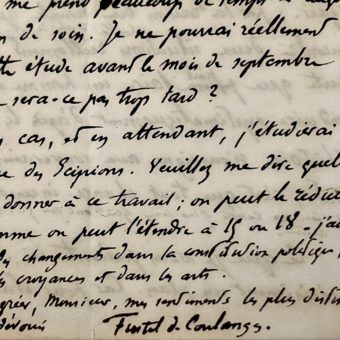 me prend beaucoup de temps et
de soin. Je ne pourrai réellement
étude avant le mois de septembre
sera-ce pas trop tard ?
cas, et en attendant, j'étudierai
des Scipions. Veuillez me dire quel
donner à ce travail ; on peut le rédui
comme on peut l'étendre à 15 ou 18 -
changements dans la constitution politique,
croyances et dans les arts.
agréer, Monsieur, mes sentiments les plus distin
dévoués Fustel de Coulanges.